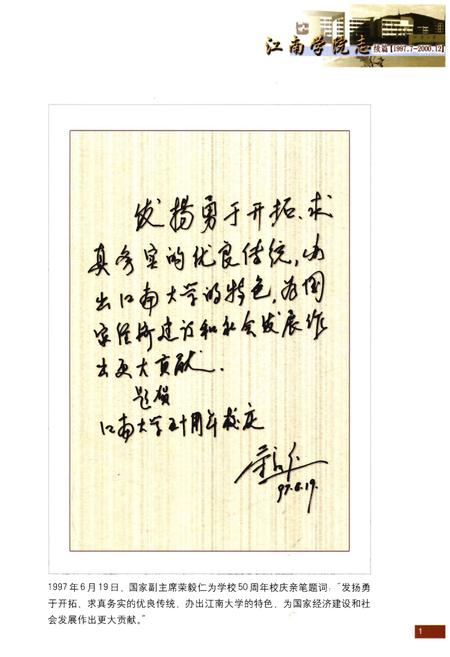 江南学院志
续篇【1997.7-2000.12】
发扬勇于开拓、求
真务实的优良传统，办
出江南大学的特色，为国
家经济建设和社会发展作
出更大贡献．
题贺
江南大学五十周年校庆
荣毅仁
97.6.19.
1997年6月19日，国家副主席荣毅仁为学校50周年校庆亲笔题词：“发扬勇
于开拓、求真务实的优良传统，办出江南大学的特色，为国家经济建设和社
会发展作出更大贡献。”
1